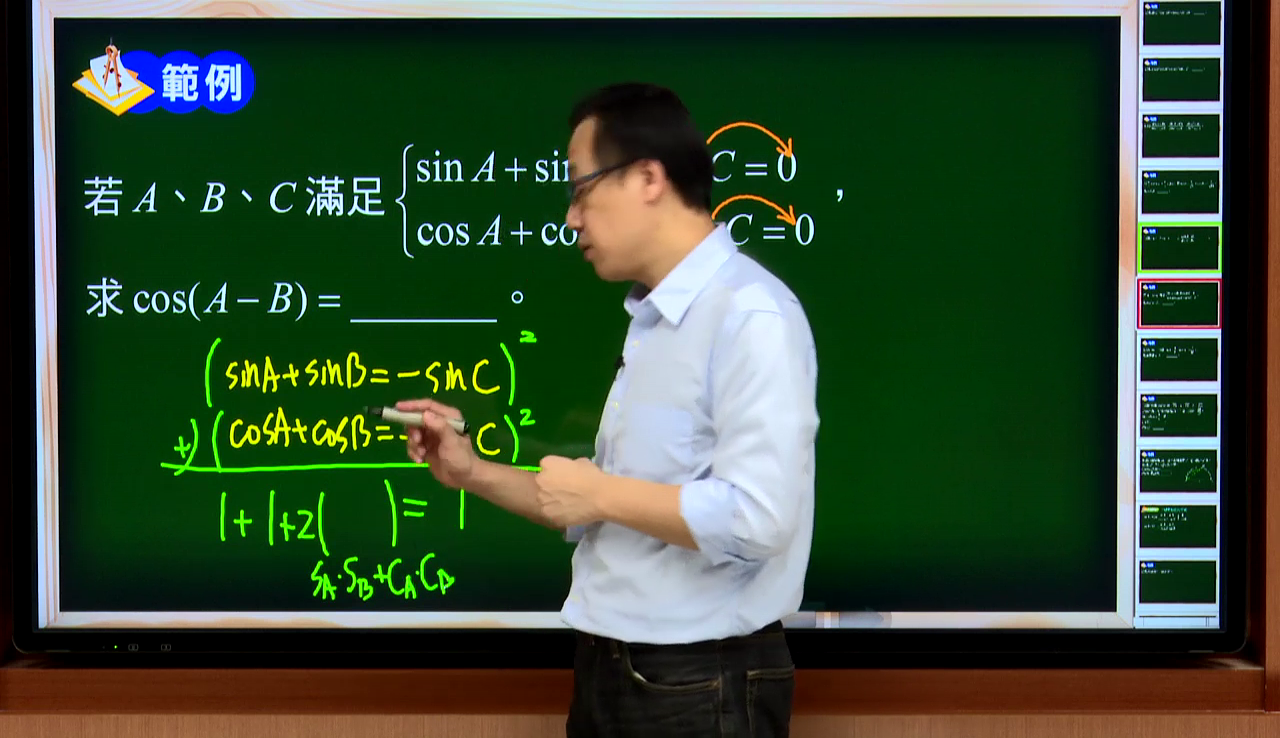 範例
若 A、B、C 滿足
sin A + sin C = 0
cos A + co C = 0 ，
求 cos(A − B) = ______ 。
(sinA+sinB=-sinC)²
+) (cosA+cosB=- C)²
1+1+2( )=1
SA·SB+CA·CB